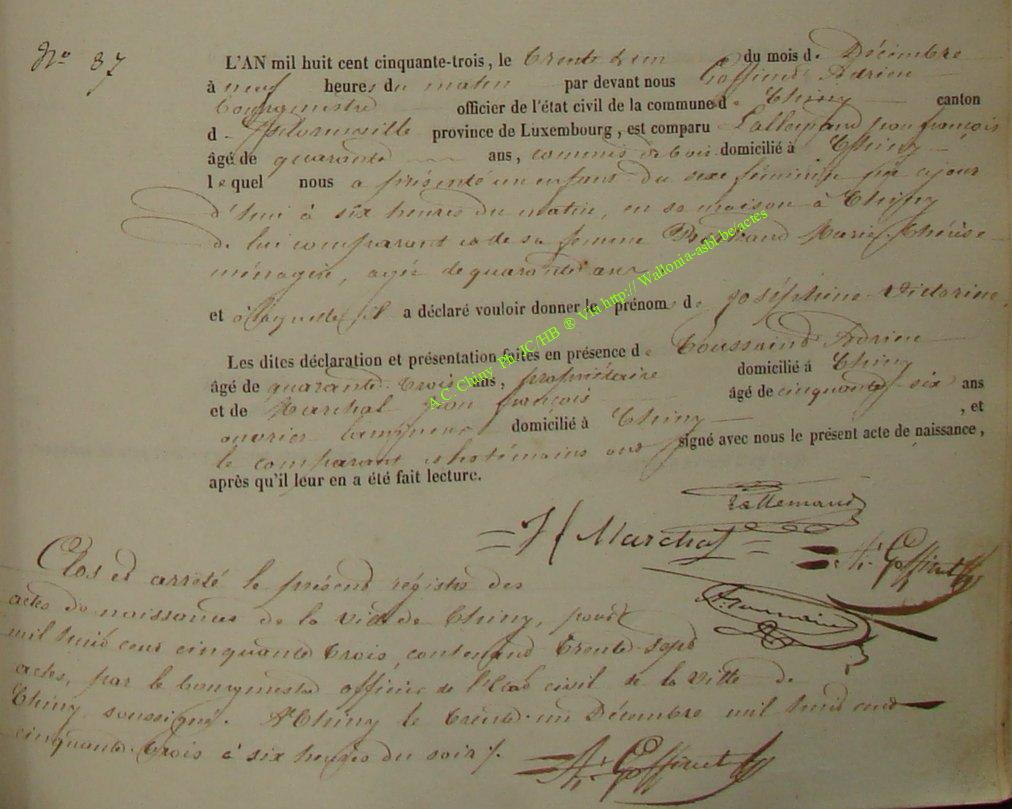 N° 37
L'AN mil huit cent cinquante-trois, le trente et un du mois de Décembre
à neuf heures du matin par devant nous Goffinet Adrien
bourgmestre officier de l'état civil de la commune de Chiny canton
d province de Luxembourg, est comparu Lallemand jean françois
âgé de quarante ans, commis de bois domicilié à Chiny
lequel nous a présenté un enfant du sexe féminin né ce jour
d'hui à six heures du matin, en sa maison à Chiny
de lui comparant et de sa femme Marie Thérèse
ménagère, agée de quarante ans
et à laquelle il a déclaré vouloir donner le prénom de joséphine Victorine
Les dites déclaration et présentation faites en présence de Toussaint Adrien
âgé de quarante trois ans, propriétaire domicilié à Chiny
et de Marchal jean françois âgé de cinquante six ans
ouvrier domicilié à Chiny , et
le comparant et les témoins ont signé avec nous le présent acte de naissance,
après qu'il leur en a été fait lecture.
Lallemand
H Marchal
A. Goffinet
A. Toussaint
Clos et arrêté le présent régistre des
actes de naissances de la ville de Chiny, pour
mil huit cent cinquante trois, contenant trente sept
actes, par le bourgmestre officier de l'Etat civil de la Ville de
Chiny soussigné. A Chiny le trente-un Décembre mil huit cent
cinquante-trois à six heures du soir /.
A. Goffinet
A.C. Chiny Ph JC/HB ® Via http:// Wallonia-asbl.be/actes